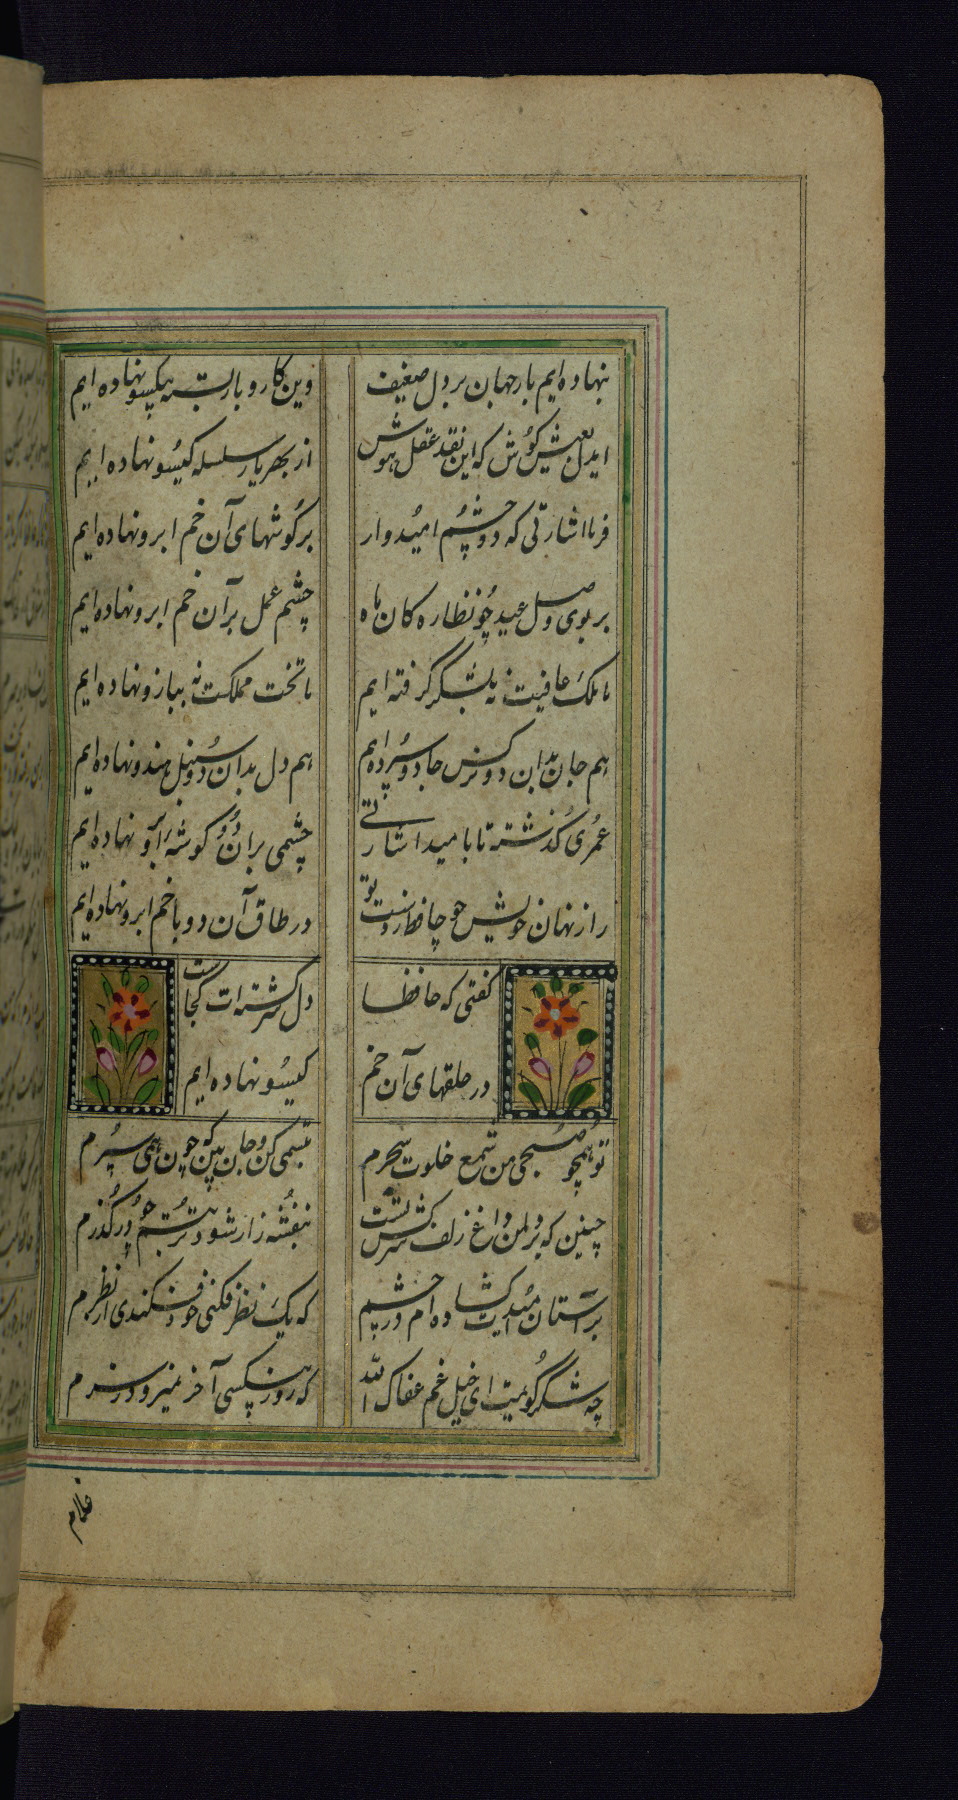 ننهاده ایم بار جهان بر دل ضعیف
وین کار و بار بسته بیکسو نهاده ایم
ایدل بعیش کوش که این نقد عقل و هوش
از بهر یار سلسله کیسو نهاده ایم
فرما اشارتی که دو چشم امیدوار
بر کوشهای آن خم ابرو نهاده ایم
بر بوی وصل عید چو نظاره کان ماه
چشم عمل بر آن خم ابرو نهاده ایم
ما ملک عافیت نه بلشکر گرفته ایم
ما تخت مملکت نه ببازو نهاده ایم
هم جان بدان دو نرکس جادو سپرده ایم
هم دل بدان دو سنبل هندو نهاده ایم
عمری گذشته تا بامید اشارتی
چشمی بران دو گوشه ابرو نهاده ایم
راز نهان خویش چو حافظ ز دست تو
در طاق آن دو با خم ابرو نهاده ایم
کفتی که حافظا
دل سرکشته ات کجاست
در حلقهای آن خم
کیسو نهاده ایم
تو همچو صبحی من شمع خلوت سحرم
تبسمی کن و جان بین که چون همی سپرم
چنین که بر دل من داغ زلف سرکش تست
بنفشه زار شود تربتم چو در گذرم
بر آستان امیدت کشاده ام در چشم
که یک نظر فکنی خود فکندی از نظرم
چه شکر گویمت ای خیل غم عفاک الله
که روز بیکسی آخر نمیرود ز سرم
غلام